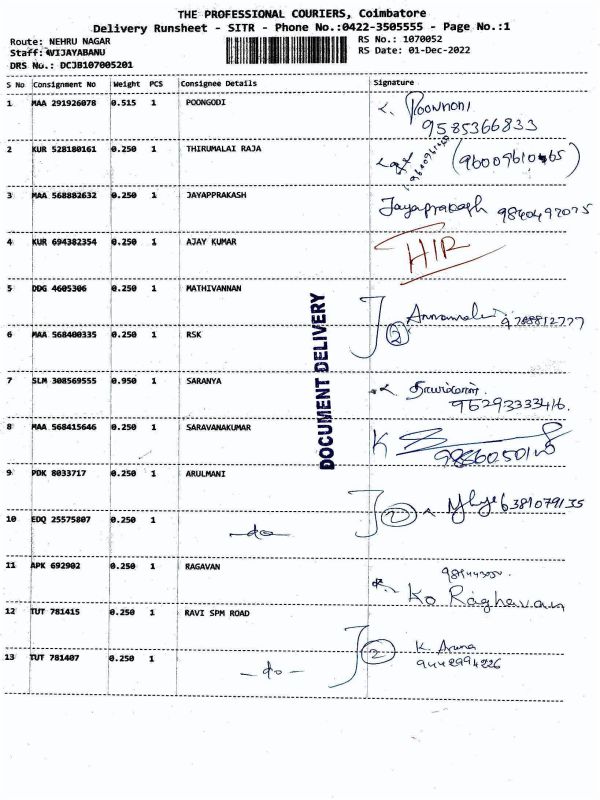 THE PROFESSIONAL COURIERS, Coimbatore
Delivery Runsheet - SITR - Phone No.:0422-3505555 - Page No.:1
Route: NEHRU NAGAR
RS No.: 1070052
Staff: VIJAYABANU
RS Date: 01-Dec-2022
DRS No.: DCJB107005201
S No Consignment No Weight PCS Consignee Details Signature
1 MAA 291926078 0.515 1 POONGODI
9585366833
2 KUR 528180161 0.250 1 THIRUMALAI RAJA
3 MAA 568882632 0.250 1 JAYAPPRAKASH Jayaprakash
4 KUR 694382354 0.250 1 AJAY KUMAR
5 DDG 4605306 0.250 1 MATHIVANNAN
2 Annamalai
6 MAA 568400335 0.250 1 RSK
DOCUMENT DELIVERY
7 SLM 308569555 0.950 1 SARANYA
8 MAA 568415646 0.250 1 SARAVANAKUMAR K
9 PDK 8033717 0.250 1 ARULMANI
2 6381079135
10 EDQ 25575807 0.250 1 -do-
11 APK 692902 0.250 1 RAGAVAN
Ko Raghavan
12 TUT 781415 0.250 1 RAVI SPM ROAD
2 K. Aruna
9442994226
13 TUT 781407 0.250 1 -do-